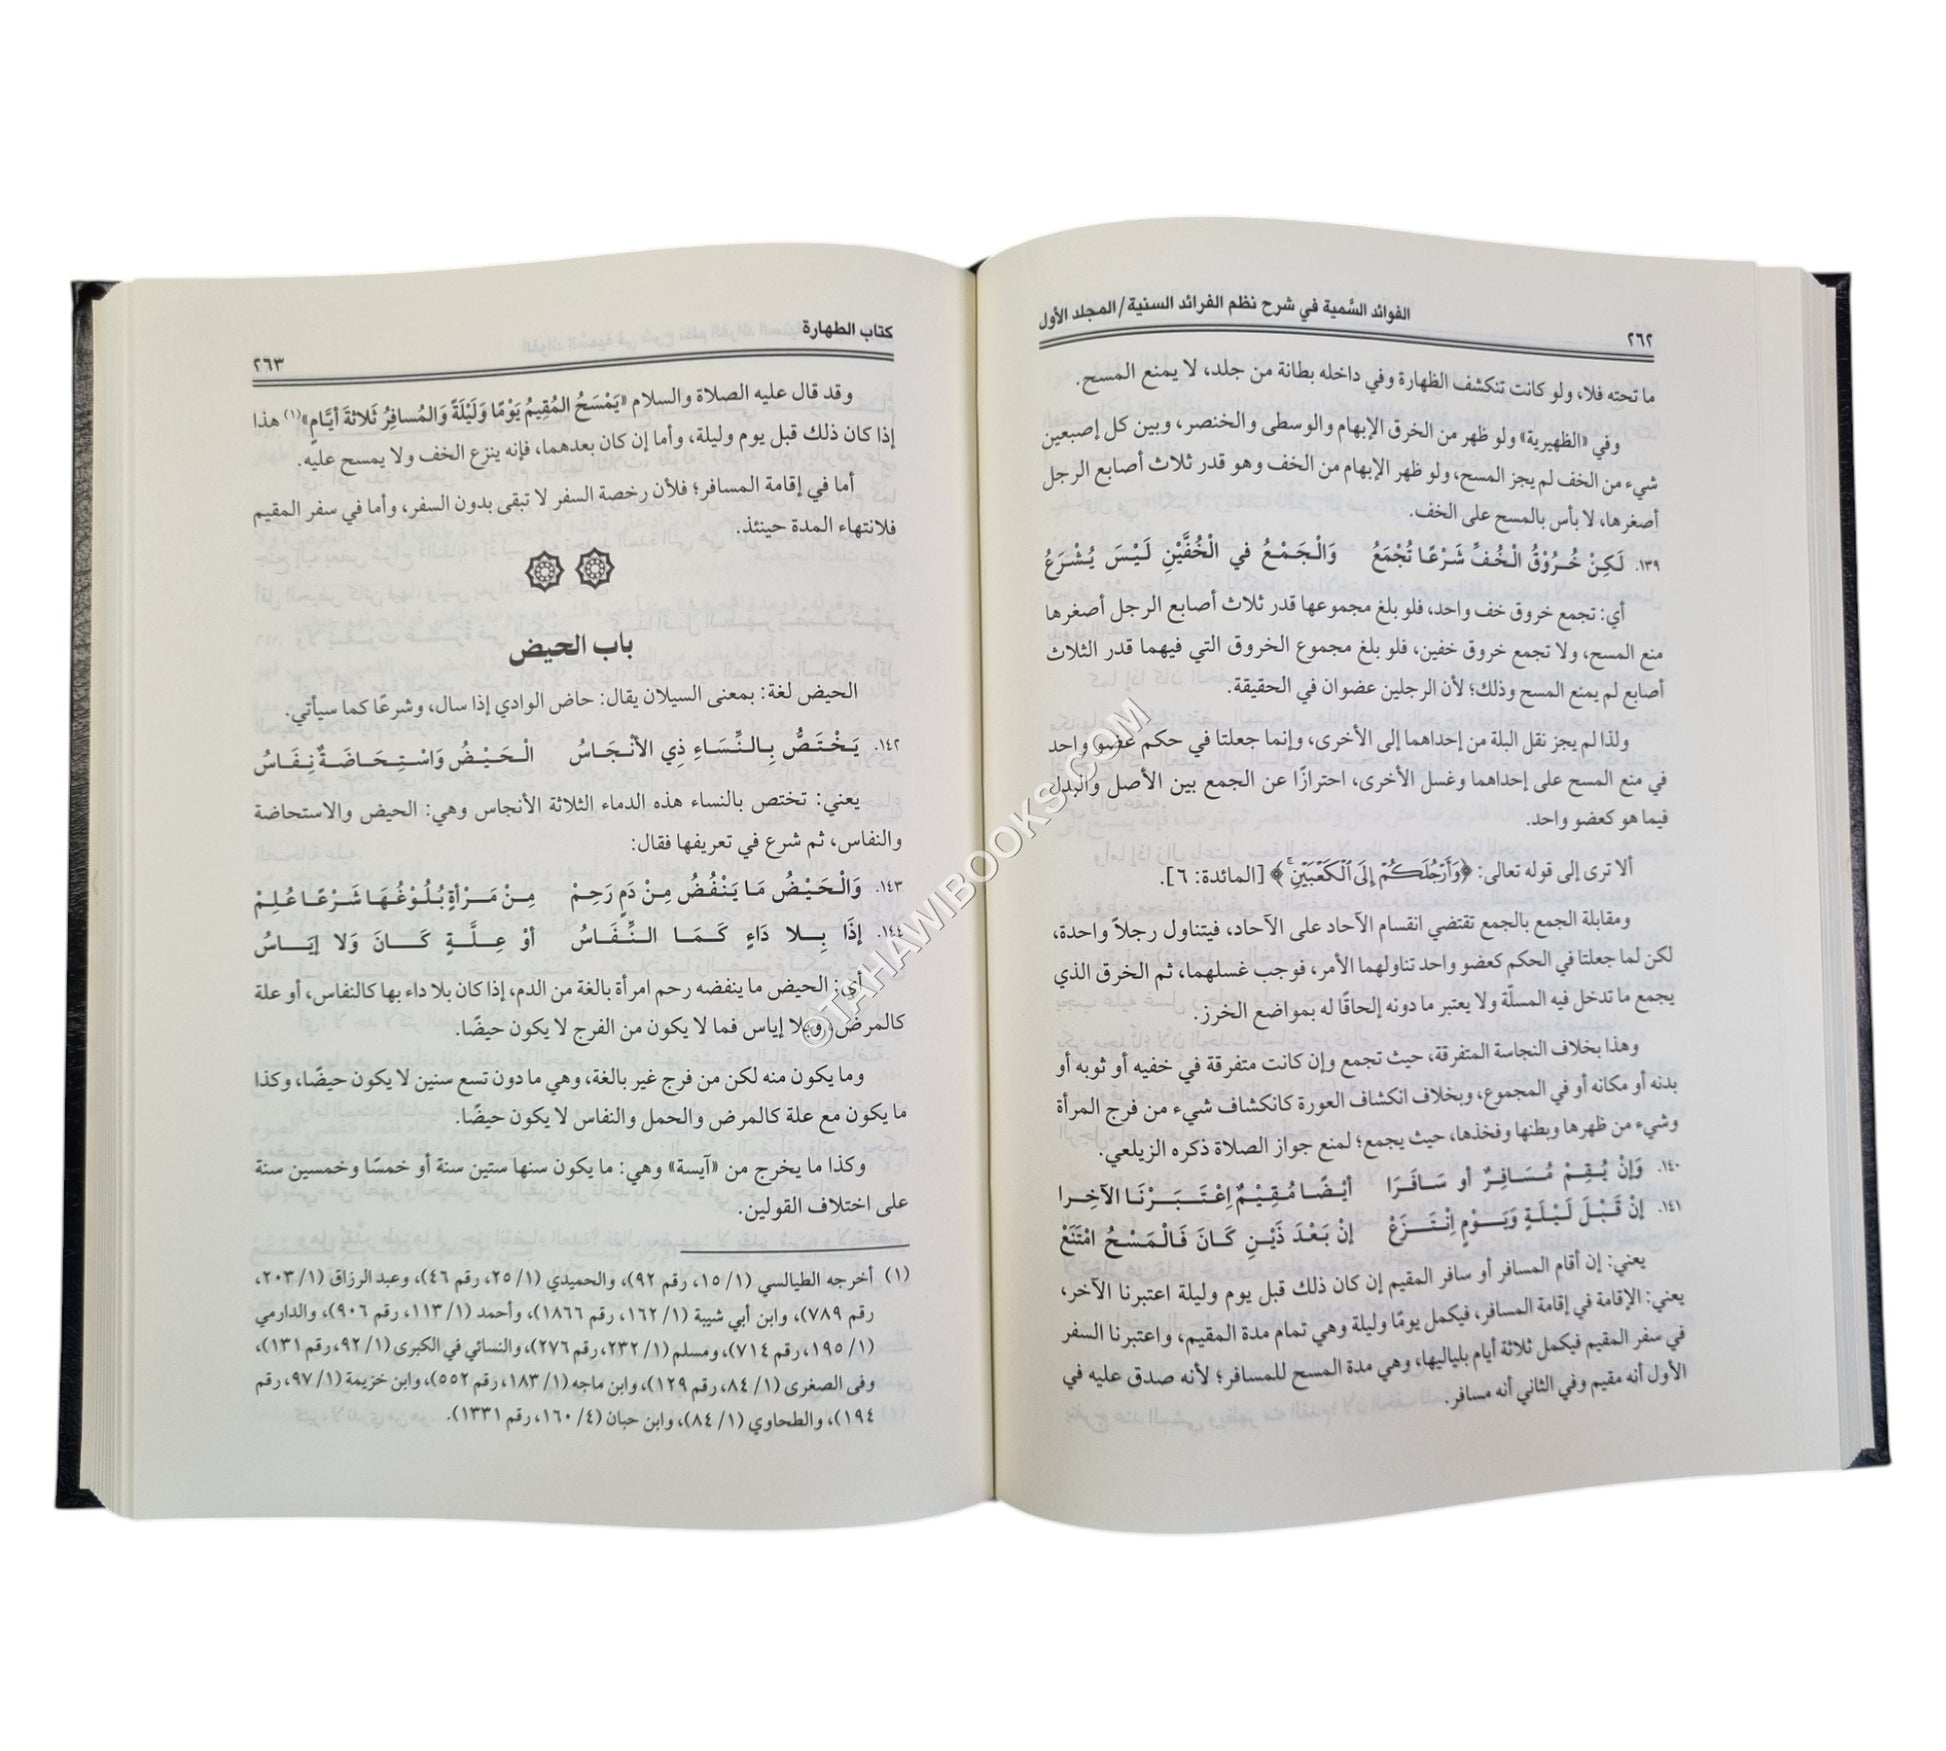 الفوائد السَّمية في شرح نظم الفرائد السنية/المجلد الأول
٢٦٢
ما تحته فلا، ولو كانت تنكشف الظهارة وفي داخله بطانة من جلد، لا يمنع المسح.
وفي «الظهيرية» ولو ظهر من الخرق الإبهام والوسطى والخنصر، وبين كل إصبعين
شيء من الخف لم يجز المسح، ولو ظهر الإبهام من الخف وهو قدر ثلاث أصابع الرجل
أصغرها، لا بأس بالمسح على الخف.
١٣٩. لَكِنْ خُرُوْقُ الْخُفِّ شَرْعًا تُجْمَعُ وَالْجَمْعُ في الْخُفَّيْنِ لَيْسَ يُشْرَعُ
أي: تجمع خروق خف واحد، فلو بلغ مجموعها قدر ثلاث أصابع الرجل أصغرها
منع المسح، ولا تجمع خروق خفين، فلو بلغ مجموع الخروق التي فيهما قدر الثلاث
أصابع لم يمنع المسح وذلك؛ لأن الرجلين عضوان في الحقيقة.
ولذا لم يجز نقل البلة من إحداهما إلى الأخرى، وإنما جعلتا في حكم عضو واحد
في منع المسح على إحداهما وغسل الأخرى، احترازًا عن الجمع بين الأصل والبدل
فيما هو كعضو واحد.
ألا ترى إلى قوله تعالى: ﴿وَأَرْجُلَكُمْ إِلَى ٱلْكَعْبَيْنِ ۚ﴾ [المائدة: ٦].
ومقابلة الجمع بالجمع تقتضي انقسام الآحاد على الآحاد، فيتناول رجلاً واحدة،
لكن لما جعلتا في الحكم كعضو واحد تناولهما الأمر، فوجب غسلهما، ثم الخرق الذي
يجمع ما تدخل فيه المسلّة ولا يعتبر ما دونه إلحاقًا له بمواضع الخرز.
وهذا بخلاف النجاسة المتفرقة، حيث تجمع وإن كانت متفرقة في خفيه أو ثوبه أو
بدنه أو مكانه أو في المجموع، وبخلاف انكشاف العورة كانكشاف شيء من فرج المرأة
وشيء من ظهرها وبطنها وفخذها، حيث يجمع؛ لمنع جواز الصلاة ذكره الزيلعي.
١٤٠. وَإنْ يُقِمْ مُسَافِرٌ أو سَافَرَا أيْضًا مُقِيْمٌ اِعْتَبَرْنَا الآخِرا
١٤١. إنْ قَبْلَ لَيْلَةٍ وَيَوْمٍ اِنْتَزَعْ إنْ بَعْدَ ذَيْنِ كَانَ فَالْمَسْحُ امْتَنَعْ
يعني: إن أقام المسافر أو سافر المقيم إن كان ذلك قبل يوم وليلة اعتبرنا الآخر،
يعني: الإقامة في إقامة المسافر، فيكمل يومًا وليلة وهي تمام مدة المقيم، واعتبرنا السفر
في سفر المقيم فيكمل ثلاثة أيام بلياليها، وهي مدة المسح للمسافر؛ لأنه صدق عليه في
الأول أنه مقيم وفي الثاني أنه مسافر.
كتاب الطهارة
٢٦٣
وقد قال عليه الصلاة والسلام «يَمْسَحُ المُقِيمُ يَوْمًا وَلَيْلَةً وَالمُسافِرُ ثَلاثةَ أيَّامٍ»(١) هذا
إذا كان ذلك قبل يوم وليلة، وأما إن كان بعدهما، فإنه ينزع الخف ولا يمسح عليه.
أما في إقامة المسافر؛ فلأن رخصة السفر لا تبقى بدون السفر، وأما في سفر المقيم
فلانتهاء المدة حينئذ.
باب الحيض
الحيض لغة: بمعنى السيلان يقال: حاض الوادي إذا سال، وشرعًا كما سيأتي.
١٤٢. يَخْتَصُّ بِالنِّسَاءِ ذِي الأنْجَاسُ الْحَيْضُ وَاسْتِحَاضَةٌ نِفَاسُ
يعني: تختص بالنساء هذه الدماء الثلاثة الأنجاس وهي: الحيض والاستحاضة
والنفاس، ثم شرع في تعريفها فقال:
١٤٣. وَالْحَيْضُ مَا يَنْفُضُ مِنْ دَمٍ رَحِمْ مِنْ مَرْأةٍ بُلُوْغُهَا شَرْعًا عُلِمْ
١٤٤. إذَا بِلا دَاءٍ كَمَا النِّفَاسُ أوْ عِلَّةٍ كَانَ وَلا إيَاسُ
أي: الحيض ما ينفضه رحم امرأة بالغة من الدم، إذا كان بلا داء بها كالنفاس، أو علة
كالمرض، وبلا إياس فما لا يكون من الفرج لا يكون حيضًا.
وما يكون منه لكن من فرج غير بالغة، وهي ما دون تسع سنين لا يكون حيضًا، وكذا
ما يكون مع علة كالمرض والحمل والنفاس لا يكون حيضًا.
وكذا ما يخرج من «آيسة» وهي: ما يكون سنها ستين سنة أو خمسًا وخمسين سنة
على اختلاف القولين.
(١) أخرجه الطيالسي (١/ ١٥، رقم ٩٢)، والحميدي (١/ ٢٥، رقم ٤٦)، وعبد الرزاق (١/ ٢٠٣،
رقم ٧٨٩)، وابن أبي شيبة (١/ ١٦٢، رقم ١٨٦٦)، وأحمد (١/ ١١٣، رقم ٩٠٦)، والدارمي
(١/ ١٩٥، رقم ٧١٤)، ومسلم (١/ ٢٣٢، رقم ٢٧٦)، والنسائي في الكبرى (١/ ٩٢، رقم ١٣١)،
وفى الصغرى (١/ ٨٤، رقم ١٢٩)، وابن ماجه (١/ ١٨٣، رقم ٥٥٢)، وابن خزيمة (١/ ٩٧، رقم
١٩٤)، والطحاوي (١/ ٨٤)، وابن حبان (٤/ ١٦٠، رقم ١٣٣١).
©TAHAWIBOOKS.COM